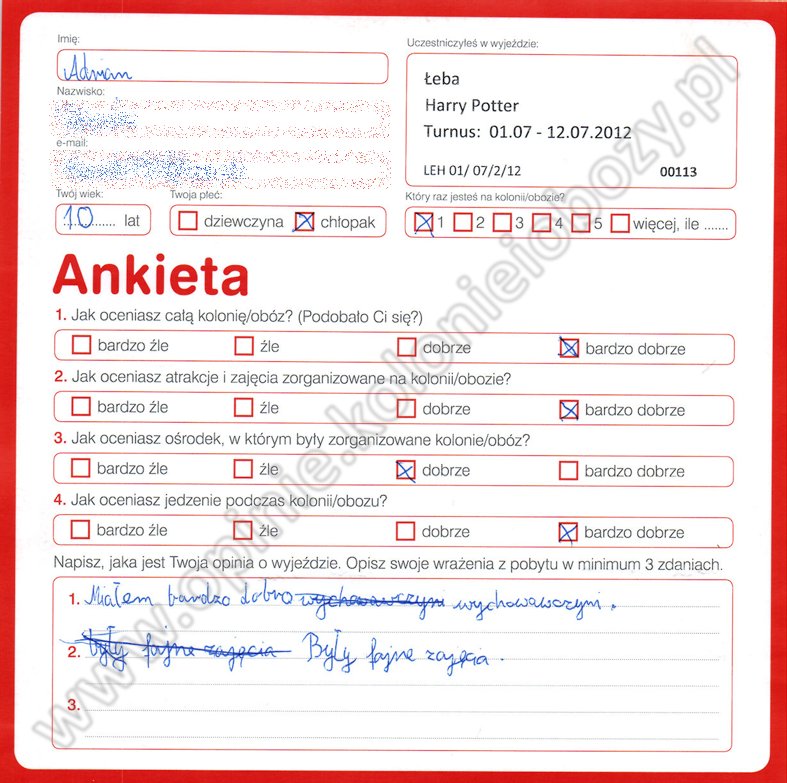 Imię:
Uczestniczyłeś w wyjeździe:
Adrian
Łeba
Harry Potter
Turnus: 01.07 - 12.07.2012
LEH 01/ 07/2/12 00113
Nazwisko:
e-mail:
Twój wiek: Twoja płeć: Który raz jesteś na kolonii/obozie?
10 lat dziewczyna chłopak 1 2 3 4 5 więcej, ile .......
Ankieta
1. Jak oceniasz całą kolonię/obóz? (Podobało Ci się?)
bardzo źle źle dobrze bardzo dobrze
2. Jak oceniasz atrakcje i zajęcia zorganizowane na kolonii/obozie?
bardzo źle źle dobrze bardzo dobrze
3. Jak oceniasz ośrodek, w którym były zorganizowane kolonie/obóz?
bardzo źle źle dobrze bardzo dobrze
4. Jak oceniasz jedzenie podczas kolonii/obozu?
bardzo źle źle dobrze bardzo dobrze
Napisz, jaka jest Twoja opinia o wyjeździe. Opisz swoje wrażenia z pobytu w minimum 3 zdaniach.
1. Miałem bardzo dobro wychowawczyni wychowawczyni.
2. były fajne zajęcia Były fajne zajęcia.
3.
www.opinie.kolonieiobozy.pl